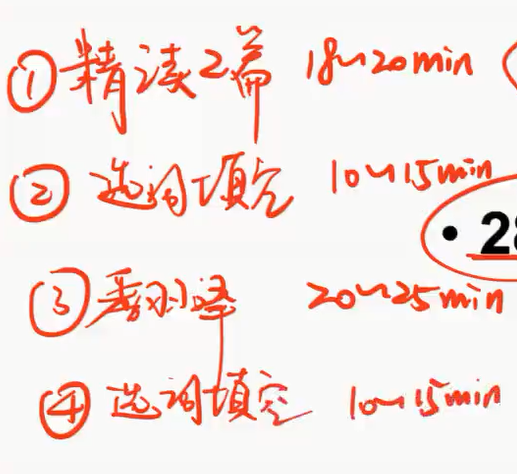 ① 精读2篇 18~20min
② 选词填空 10~15min
• 28
③ 翻译 20~25min
④ 选词填空 10~15min